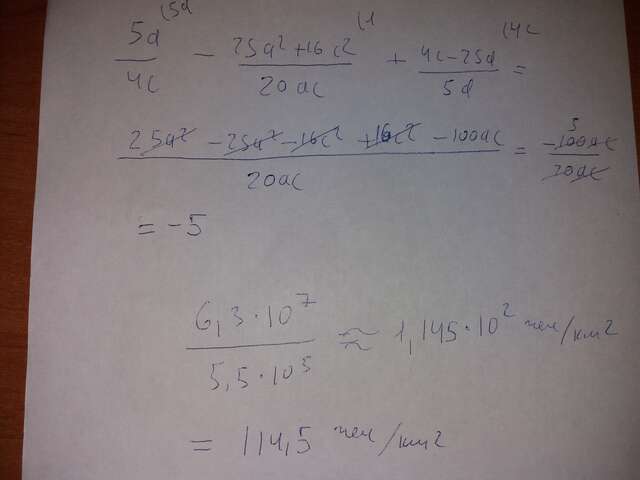 (5a (1 (4c
5a/4c − 25a²+16c²/20ac + 4c−25a/5a =
25a² −25a² −16c² +16c² −100ac/20ac = −100ac/20ac 5
= −5
6,3·10⁷/5,5·10⁵ ≈ 1,145·10² чел/км2
= 114,5 чел/км2